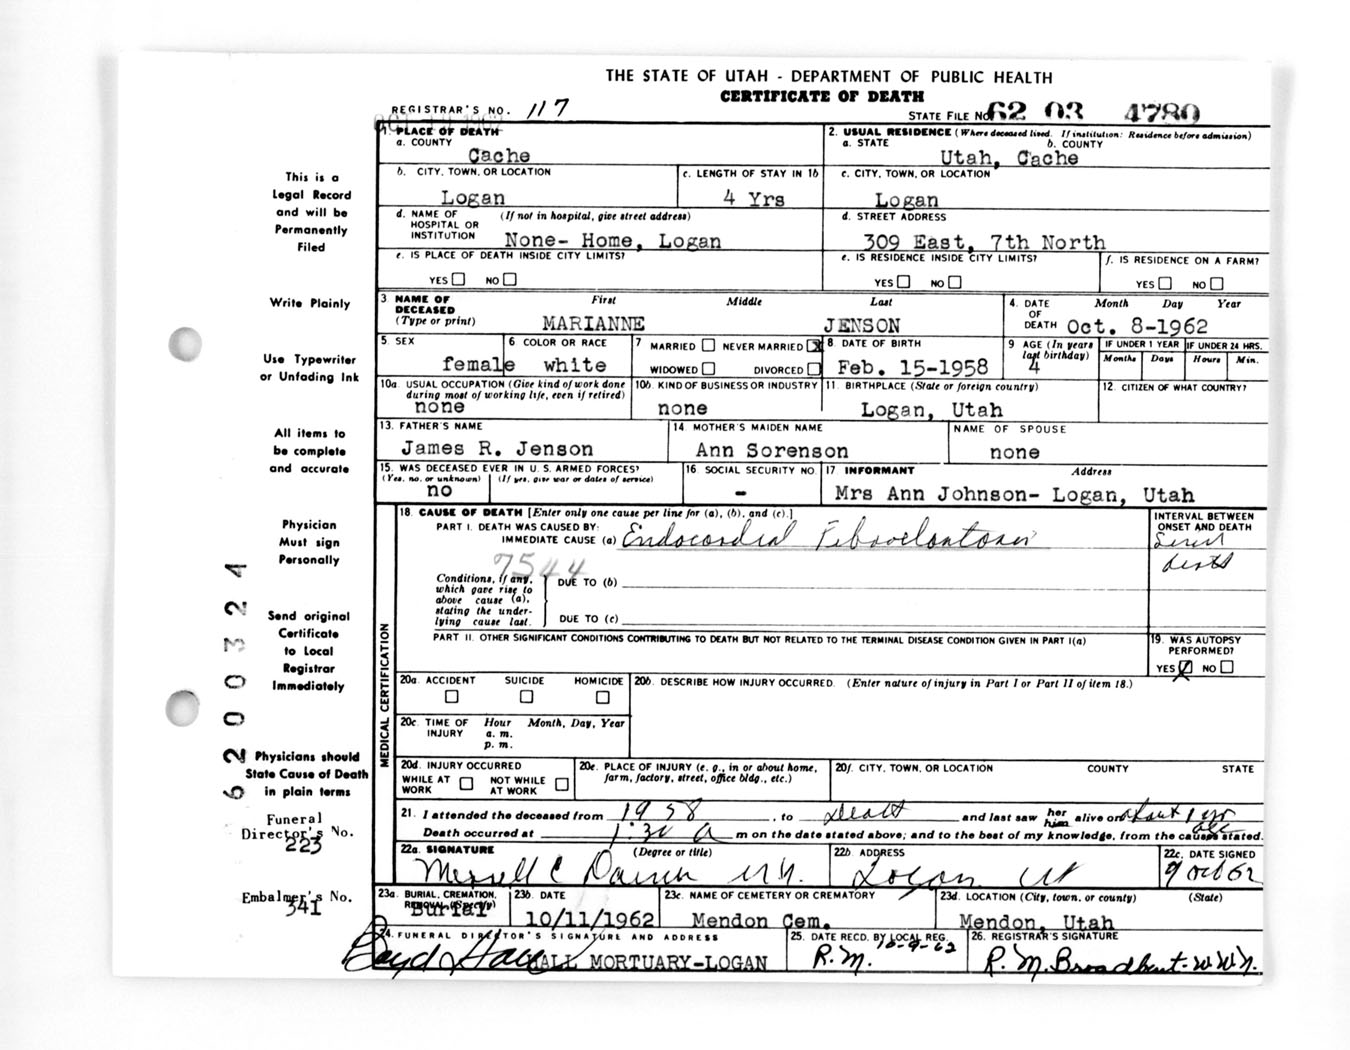 THE STATE OF UTAH - DEPARTMENT OF PUBLIC HEALTH
CERTIFICATE OF DEATH
REGISTRAR'S NO. 117
STATE FILE NO. 62 03 4780
1. PLACE OF DEATH
a. COUNTY
Cache
2. USUAL RESIDENCE (Where deceased lived. If institution: Residence before admission)
a. STATE b. COUNTY
Utah, Cache
b. CITY, TOWN, OR LOCATION
Logan
c. LENGTH OF STAY IN 1b
4 Yrs
c. CITY, TOWN, OR LOCATION
Logan
d. NAME OF HOSPITAL OR INSTITUTION (If not in hospital, give street address)
None- Home, Logan
d. STREET ADDRESS
309 East, 7th North
e. IS PLACE OF DEATH INSIDE CITY LIMITS?
YES NO
e. IS RESIDENCE INSIDE CITY LIMITS?
YES NO
f. IS RESIDENCE ON A FARM?
YES NO
3. NAME OF DECEASED (Type or print)
First Middle Last
MARIANNE JENSON
4. DATE OF DEATH Month Day Year
Oct. 8-1962
5. SEX
female
6 COLOR OR RACE
white
7 MARRIED NEVER MARRIED X
WIDOWED DIVORCED
8. DATE OF BIRTH
Feb. 15-1958
9 AGE (In years last birthday)
4
IF UNDER 1 YEAR
Months Days
IF UNDER 24 HRS.
Hours Min.
10a. USUAL OCCUPATION (Give kind of work done during most of working life, even if retired)
none
10b. KIND OF BUSINESS OR INDUSTRY
none
11. BIRTHPLACE (State or foreign country)
Logan, Utah
12. CITIZEN OF WHAT COUNTRY?
13. FATHER'S NAME
James R. Jenson
14. MOTHER'S MAIDEN NAME
Ann Sorenson
NAME OF SPOUSE
none
15. WAS DECEASED EVER IN U. S. ARMED FORCES?
(Yes, no, or unknown) (If yes, give war or dates of service)
no
16 SOCIAL SECURITY NO.
-
17 INFORMANT Address
Mrs Ann Johnson- Logan, Utah
18. CAUSE OF DEATH [Enter only one cause per line for (a), (b), and (c).]
PART I. DEATH WAS CAUSED BY:
IMMEDIATE CAUSE (a) Endocardial
7544
INTERVAL BETWEEN ONSET AND DEATH
Conditions, if any, which gave rise to above cause (a), stating the underlying cause last.
DUE TO (b)
DUE TO (c)
PART II. OTHER SIGNIFICANT CONDITIONS CONTRIBUTING TO DEATH BUT NOT RELATED TO THE TERMINAL DISEASE CONDITION GIVEN IN PART I(a)
19. WAS AUTOPSY PERFORMED?
YES X NO
MEDICAL CERTIFICATION
20a. ACCIDENT SUICIDE HOMICIDE
20b. DESCRIBE HOW INJURY OCCURRED. (Enter nature of injury in Part I or Part II of item 18.)
20c. TIME OF INJURY Hour Month, Day, Year
a. m.
p. m.
20d. INJURY OCCURRED
WHILE AT WORK NOT WHILE AT WORK
20e. PLACE OF INJURY (e. g., in or about home, farm, factory, street, office bldg., etc.)
20f. CITY, TOWN, OR LOCATION COUNTY STATE
21. I attended the deceased from 1958, to Death and last saw her him alive on about 1 yr
Death occurred at 1:30 A m on the date stated above; and to the best of my knowledge, from the causes stated.
22a. SIGNATURE (Degree or title)
Merrell C
22b. ADDRESS
Logan Ut
22c. DATE SIGNED
9 Oct 62
23a. BURIAL, CREMATION, REMOVAL (Specify)
Burial
23b. DATE
10/11/1962
23c. NAME OF CEMETERY OR CREMATORY
Mendon Cem.
23d. LOCATION (City, town, or county) (State)
Mendon, Utah
24. FUNERAL DIRECTOR'S SIGNATURE AND ADDRESS
Boyd Hall HALL MORTUARY-LOGAN
25. DATE RECD. BY LOCAL REG.
10-9-62
R.M.
26. REGISTRAR'S SIGNATURE
R. M. Broadbent-
This is a
Legal Record
and will be
Permanently
Filed
Write Plainly
Use Typewriter
or Unfading Ink
All items to
be complete
and accurate
Physician
Must sign
Personally
Send original
Certificate
to Local
Registrar
Immediately
Physicians should
State Cause of Death
in plain terms
Funeral
Director's No.
223
Embalmer's No.
341
6200324